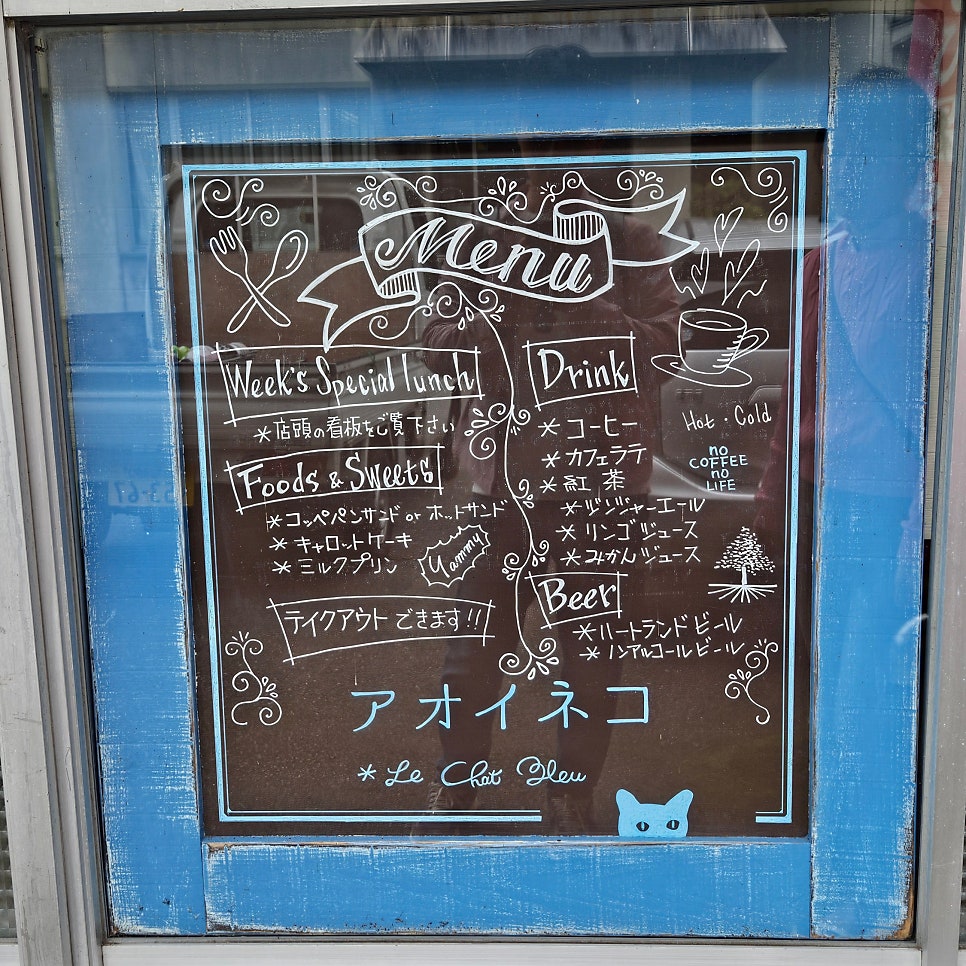 Menu
Week's Special lunch
*店頭の看板をご覧下さい
Foods & Sweets
*コッペパンサンド or ホットサンド
*キャロットケーキ
*ミルクプリン
Yammy!
テイクアウトできます!!
Drink
*コーヒー
*カフェラテ
*紅茶
*ジンジャーエール
*リンゴジュース
*みかんジュース
Hot・Cold
no
COFFEE
no
LIFE
Beer
*ハートランドビール
*ノンアルコールビール
アオイネコ
*Le Chat Bleu